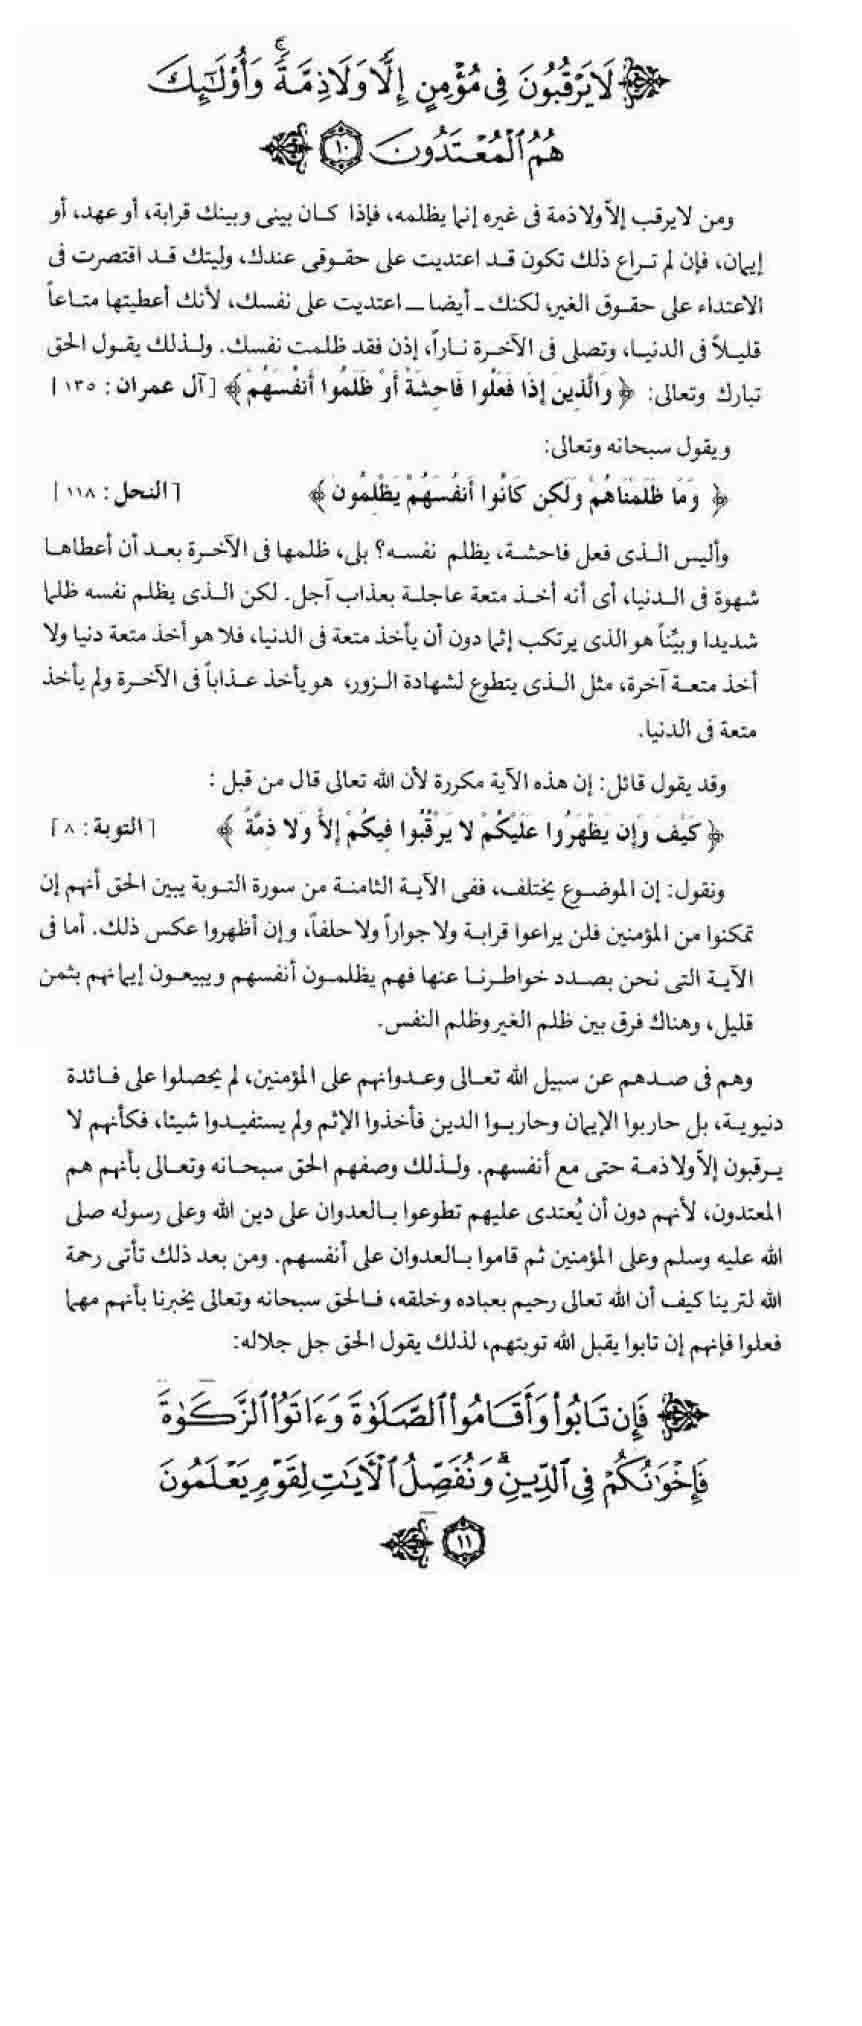 لَا يَرْقُبُونَ فِى مُؤْمِنٍ إِلًّا وَلَا ذِمَّةً ۚ وَأُوْلَٰٓئِكَ
هُمُ ٱلْمُعْتَدُونَ ١٠
ومن لا يرقب إلاًّ ولا ذمة فى غيره إنما يظلمه، فإذا كان بينى وبينك قرابة، أو عهد، أو
إيمان، فإن لم تراع ذلك تكون قد اعتديت على حقوقى عندك، وليتك قد اقتصرت فى
الاعتداء على حقوق الغير، لكنك ـ أيضا ـ اعتديت على نفسك، لأنك أعطيتها متاعاً
قليلاً فى الدنيا، وتصلى فى الآخرة ناراً، إذن فقد ظلمت نفسك. ولذلك يقول الحق
تبارك وتعالى: ﴿ وَالَّذِينَ إِذَا فَعَلُوا فَاحِشَةً أَوْ ظَلَمُوا أَنفُسَهُمْ ﴾ [آل عمران: ١٣٥]
ويقول سبحانه وتعالى:
﴿ وَمَا ظَلَمْنَاهُمْ وَلَكِن كَانُوا أَنفُسَهُمْ يَظْلِمُونَ ﴾ [النحل: ١١٨]
وأليس الذى فعل فاحشة، يظلم نفسه؟ بلى، ظلمها فى الآخرة بعد أن أعطاها
شهوة فى الدنيا، أى أنه أخذ متعة عاجلة بعذاب آجل. لكن الذى يظلم نفسه ظلما
شديدا وبيِّناً هو الذى يرتكب إثما دون أن يأخذ متعة فى الدنيا، فلا هو أخذ متعة دنيا ولا
أخذ متعة آخرة، مثل الذى يتطوع لشهادة الزور، هو يأخذ عذاباً فى الآخرة ولم يأخذ
متعة فى الدنيا.
وقد يقول قائل: إن هذه الآية مكررة لأن الله تعالى قال من قبل:
﴿ كَيْفَ وَإِن يَظْهَرُوا عَلَيْكُمْ لا يَرْقُبُوا فِيكُمْ إِلاًّ وَلا ذِمَّةً ﴾ [التوبة: ٨]
ونقول: إن الموضوع يختلف، ففى الآية الثامنة من سورة التوبة يبين الحق أنهم إن
تمكنوا من المؤمنين فلن يراعوا قرابة ولا جواراً ولا حلفاً، وإن أظهروا عكس ذلك. أما فى
الآية التى نحن بصدد خواطرنا عنها فهم يظلمون أنفسهم ويبيعون إيمانهم بثمن
قليل، وهناك فرق بين ظلم الغير وظلم النفس.
وهم فى صدهم عن سبيل الله تعالى وعدوانهم على المؤمنين، لم يحصلوا على فائدة
دنيوية، بل حاربوا الإيمان وحاربوا الدين فأخذوا الإثم ولم يستفيدوا شيئا، فكأنهم لا
يرقبون إلاًّ ولا ذمة حتى مع أنفسهم. ولذلك وصفهم الحق سبحانه وتعالى بأنهم هم
المعتدون، لأنهم دون أن يُعتدى عليهم تطوعوا بالعدوان على دين الله وعلى رسوله صلى
الله عليه وسلم وعلى المؤمنين ثم قاموا بالعدوان على أنفسهم. ومن بعد ذلك تأتى رحمة
الله لترينا كيف أن الله تعالى رحيم بعباده وخلقه، فالحق سبحانه وتعالى يخبرنا بأنهم مهما
فعلوا فإنهم إن تابوا يقبل الله توبتهم، لذلك يقول الحق جل جلاله:
فَإِن تَابُواْ وَأَقَامُواْ ٱلصَّلَوٰةَ وَءَاتَوُاْ ٱلزَّكَوٰةَ
فَإِخْوَٰنُكُمْ فِى ٱلدِّينِ ۗ وَنُفَصِّلُ ٱلْءَايَٰتِ لِقَوْمٍ يَعْلَمُونَ
١١